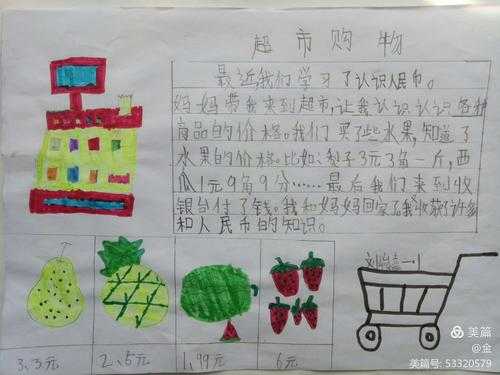 超市购物
最近,我们学习了认识人民币。
妈妈带我来到超市,让我认识认识各种
商品的价格。我们买了些水果,知道了
水果的价格。比如:梨子3元3角一斤,西
瓜1元9角9分……最后我们来到收
银台付了钱。我和妈妈回家了我收获了许多
和人民币的知识。
一.1
3、3元
2、5元
1、99元
6元
美篇
@金
美篇号: 53320579